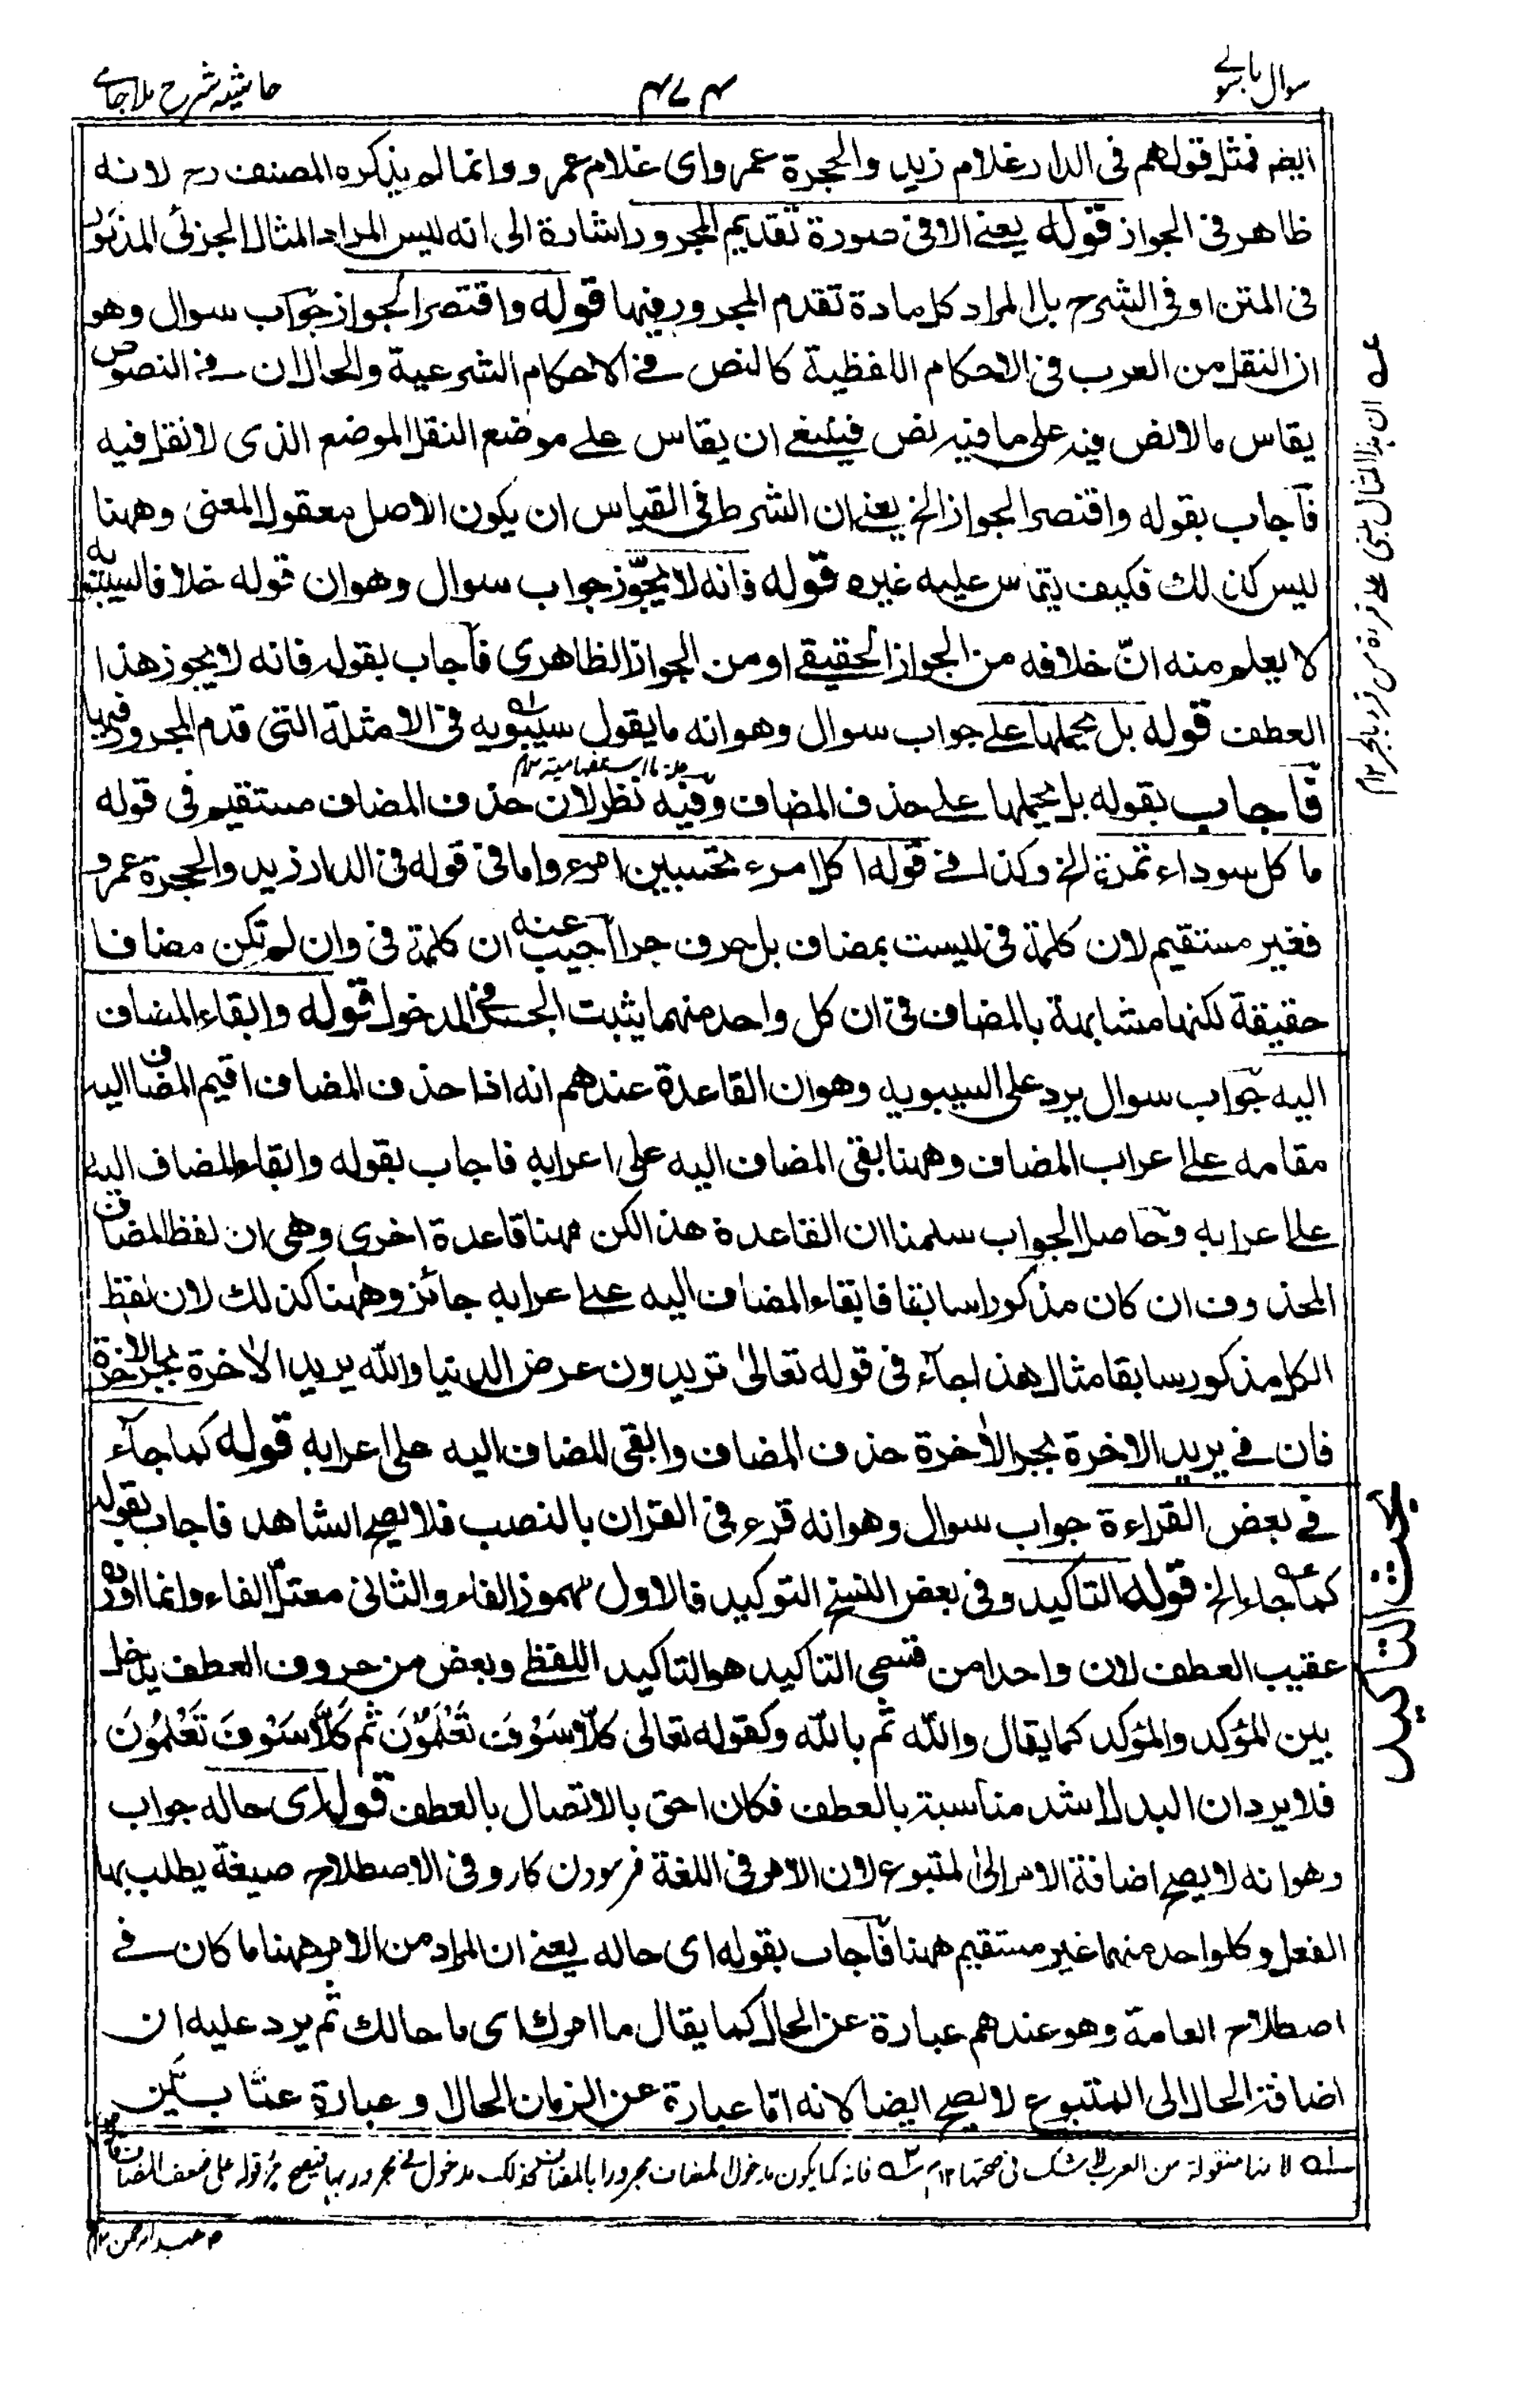 سوال باسولی
۴۷۴
حاشیه شرح ملا جامی
ایضہ فمثل قولهم فی الدار غلام زید والحجرة عمرو ای غلام عمرو وانما لم یذکره المصنف رح لانه
ظاهر فی الجواز قوله یعنے الا فی صورة تقدیم المجرور اشارة الی انه لیس المراد المثال الجزئی المذکور
فی المتن او فی الشرح بل المراد کل مادة تقدم المجرور فیها قوله واقتصر الجواز جواب سوال وهو
ان النقل من العرب فی الاحکام اللفظیة کالنص فے الاحکام الشرعیة والحال ان فے النصوص
یقاس مالا نص فیه علی ما فیه نص فینبغے ان یقاس علے موضع النقل الموضع الذی لا نقل فیه
فآجاب بقوله واقتصر الجواز الخ یعنے ان الشرط فی القیاس ان یکون الاصل معقول المعنی وههنا
لیس کذلك فکیف یقاس علیه غیره قوله فانه لا یجوّز جواب سوال وهو ان قوله خلافا لسیبویه
لا یعلم منه انّ خلافه من الجواز الحقیقے او من الجواز الظاهری فآجاب بقوله فانه لا یجوز هذا
العطف قوله بل یحملها علے جواب سوال وهو انه ما یقول سیبویه فی الامثلة التی قدم المجرور فیها
فآجاب بقوله بل یحملها علے حذف المضاف وفیه نظر لان حذف المضاف مستقیم فی قوله
ما کل سوداء تمرة الخ وکذا فے قوله اکل امرء تحسبین امرء واما فی قوله فی الدار زید والحجرة عمرو
فغیر مستقیم لان کلمة فی لیست بمضاف بل حرف جر آجیب عنه ان کلمة فی وان لم تکن مضافا
حقیقة لکنها مشابهة بالمضاف فی ان کل واحد منهما یثبت الجر فے المدخول قوله وابقاء المضاف
الیه جواب سوال یرد علی السیبویه وهو ان القاعدة عندهم انه اذا حذف المضاف اقیم المضاف الیه
مقامه علے اعراب المضاف وههنا بقی المضاف الیه علی اعرابه فاجاب بقوله وابقاء المضاف الیه
علے اعرابه وحاصل الجواب سلمنا ان القاعدة هذا لکن ههنا قاعدة اخری وهی ان لفظ المضاف
المحذوف ان کان مذکورا سابقا فابقاء المضاف الیه علے اعرابه جائز وههنا کذلك لان لفظ
الکل مذکور سابقا مثال هذا جآء فی قوله تعالیٰ تریدون عرض الدنیا والله یرید الآخرة بجر الآخرة
فان فے یرید الاخرة بجر الآخرة حذف المضاف وابقی المضاف الیه علی اعرابه قوله کما جآء
فے بعض القراءة جواب سوال وهو انه قرء فی القران بالنصب فلا یصح الشاهد فاجاب بقوله
کما جاء الخ قوله التاکید وفی بعض النسخ التوکید فالاول مهموز الفاء والثانی معتل الفاء وانما اورده
عقیب العطف لان واحدا من قسمی التاکید هو التاکید اللفظے وبعض من حروف العطف یدخل
بین المؤکد والمؤکد کما یقال والله ثم بالله وکقوله تعالی کَلَّا سَوْفَ تَعْلَمُوْنَ ثُمَّ کَلَّا سَوْفَ تَعْلَمُوْنَ
فلا یرد ان البدل اشد مناسبة بالعطف فکان احق بالاتصال بالعطف قوله ای حاله جواب
وهو انه لا یصح اضافة الامر الی المتبوع لان الامر فی اللغة فرمودن کار وفی الاصطلاح صیغة یطلب بها
الفعل وکل واحد منهما غیر مستقیم ههنا فآجاب بقوله ای حاله یعنے ان المراد من الامر ههنا ما کان فے
اصطلاح العامة وهو عندهم عبارة عن الحال کما یقال ما امرك ای ما حالك ثم یرد علیه ان
اضافة الحال الی المتبوع لا یصح ایضا لانه امّا عبارة عن الزمان الحال او عبارة عمّا بیّن
لاننا منقولة من العرب لا شک فی صحتها ۱۲ فانه کما یکون مدخول المضاف مجرورا بالمضاف کذلک مدخول فے مجرور بها
عبدالرحمن ۱۲
بحث التاکید